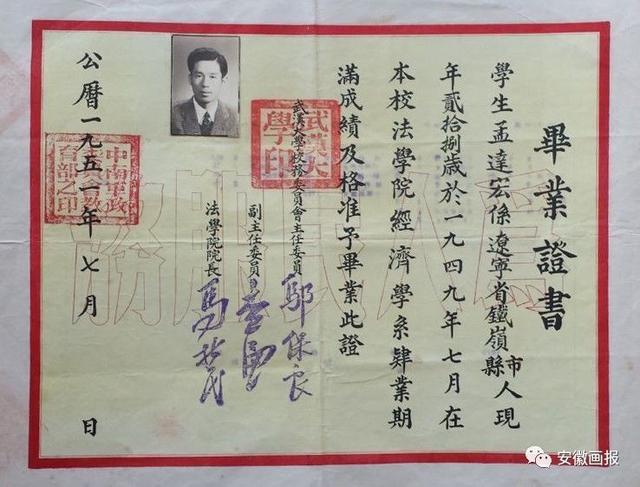 畢業證書
學生孟達宏係遼寧省鐵嶺縣市人現
年貳拾捌歲於一九四九年七月在
本校法學院經濟學系肄業期
滿成績及格准予畢業此證
武漢大學校務委員會主任委員 鄔保良
副主任委員
法學院院長
公曆一九五一年七月 日
武漢大學印
中南軍政委員會教育部之印
為人民服務
安徽画报